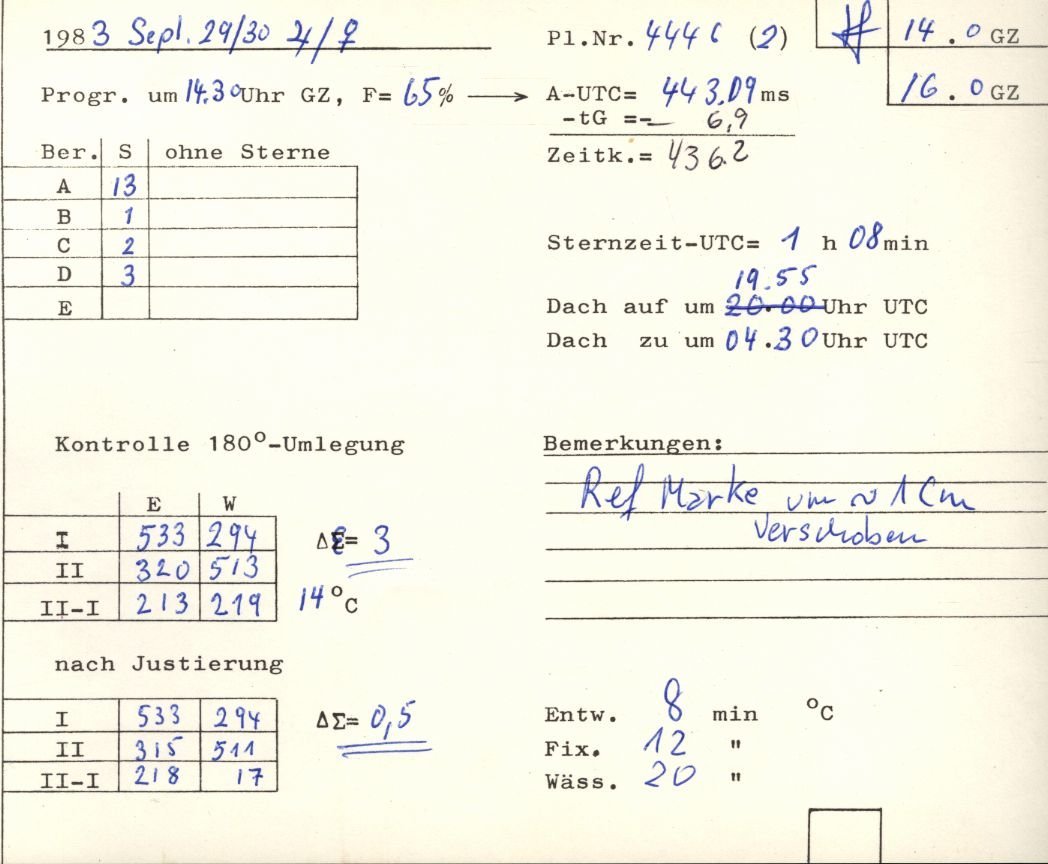 1983 Sept. 29/30 ♃/♀
Pl.Nr. 4446 (2)
14.0 GZ
Progr. um 14.30 Uhr GZ, F= 65% → A-UTC= 443.09 ms
16.0 GZ
-tG =- 6,9
Zeitk.= 436.2
Ber. S ohne Sterne
A 13
B 1
C 2
D 3
E
Sternzeit-UTC= 1 h 08 min
19.55
Dach auf um 20.00 Uhr UTC
Dach zu um 04.30 Uhr UTC
Kontrolle 180°-Umlegung
E W
I 533 294
II 320 513
II-I 213 219
ΔΣ= 3
14 °C
Bemerkungen:
Ref Marke um ~ 1 Cm
verschoben
nach Justierung
I 533 294
II 315 511
II-I 218 17
ΔΣ= 0,5
Entw. 8 min °C
Fix. 12 "
Wäss. 20 "